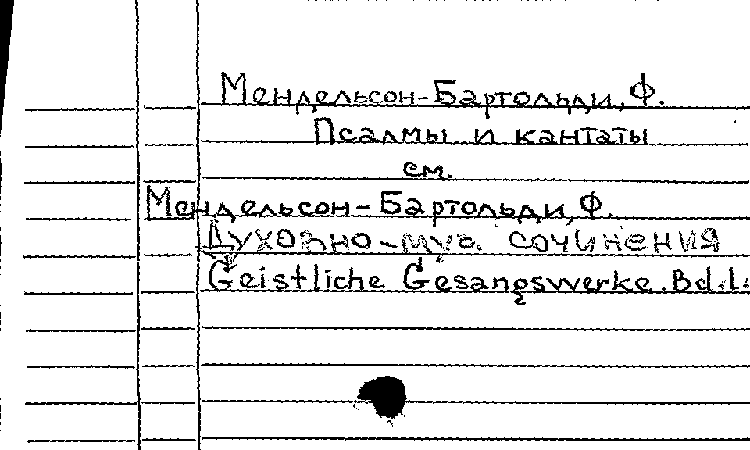 Мендельсон-Бартольди, Ф.
Псалмы и кантаты
см.
Мендельсон-Бартольди, Ф.
Духовно-муз. сочинения
Geistliche Gesangswerke. Bd. 1.